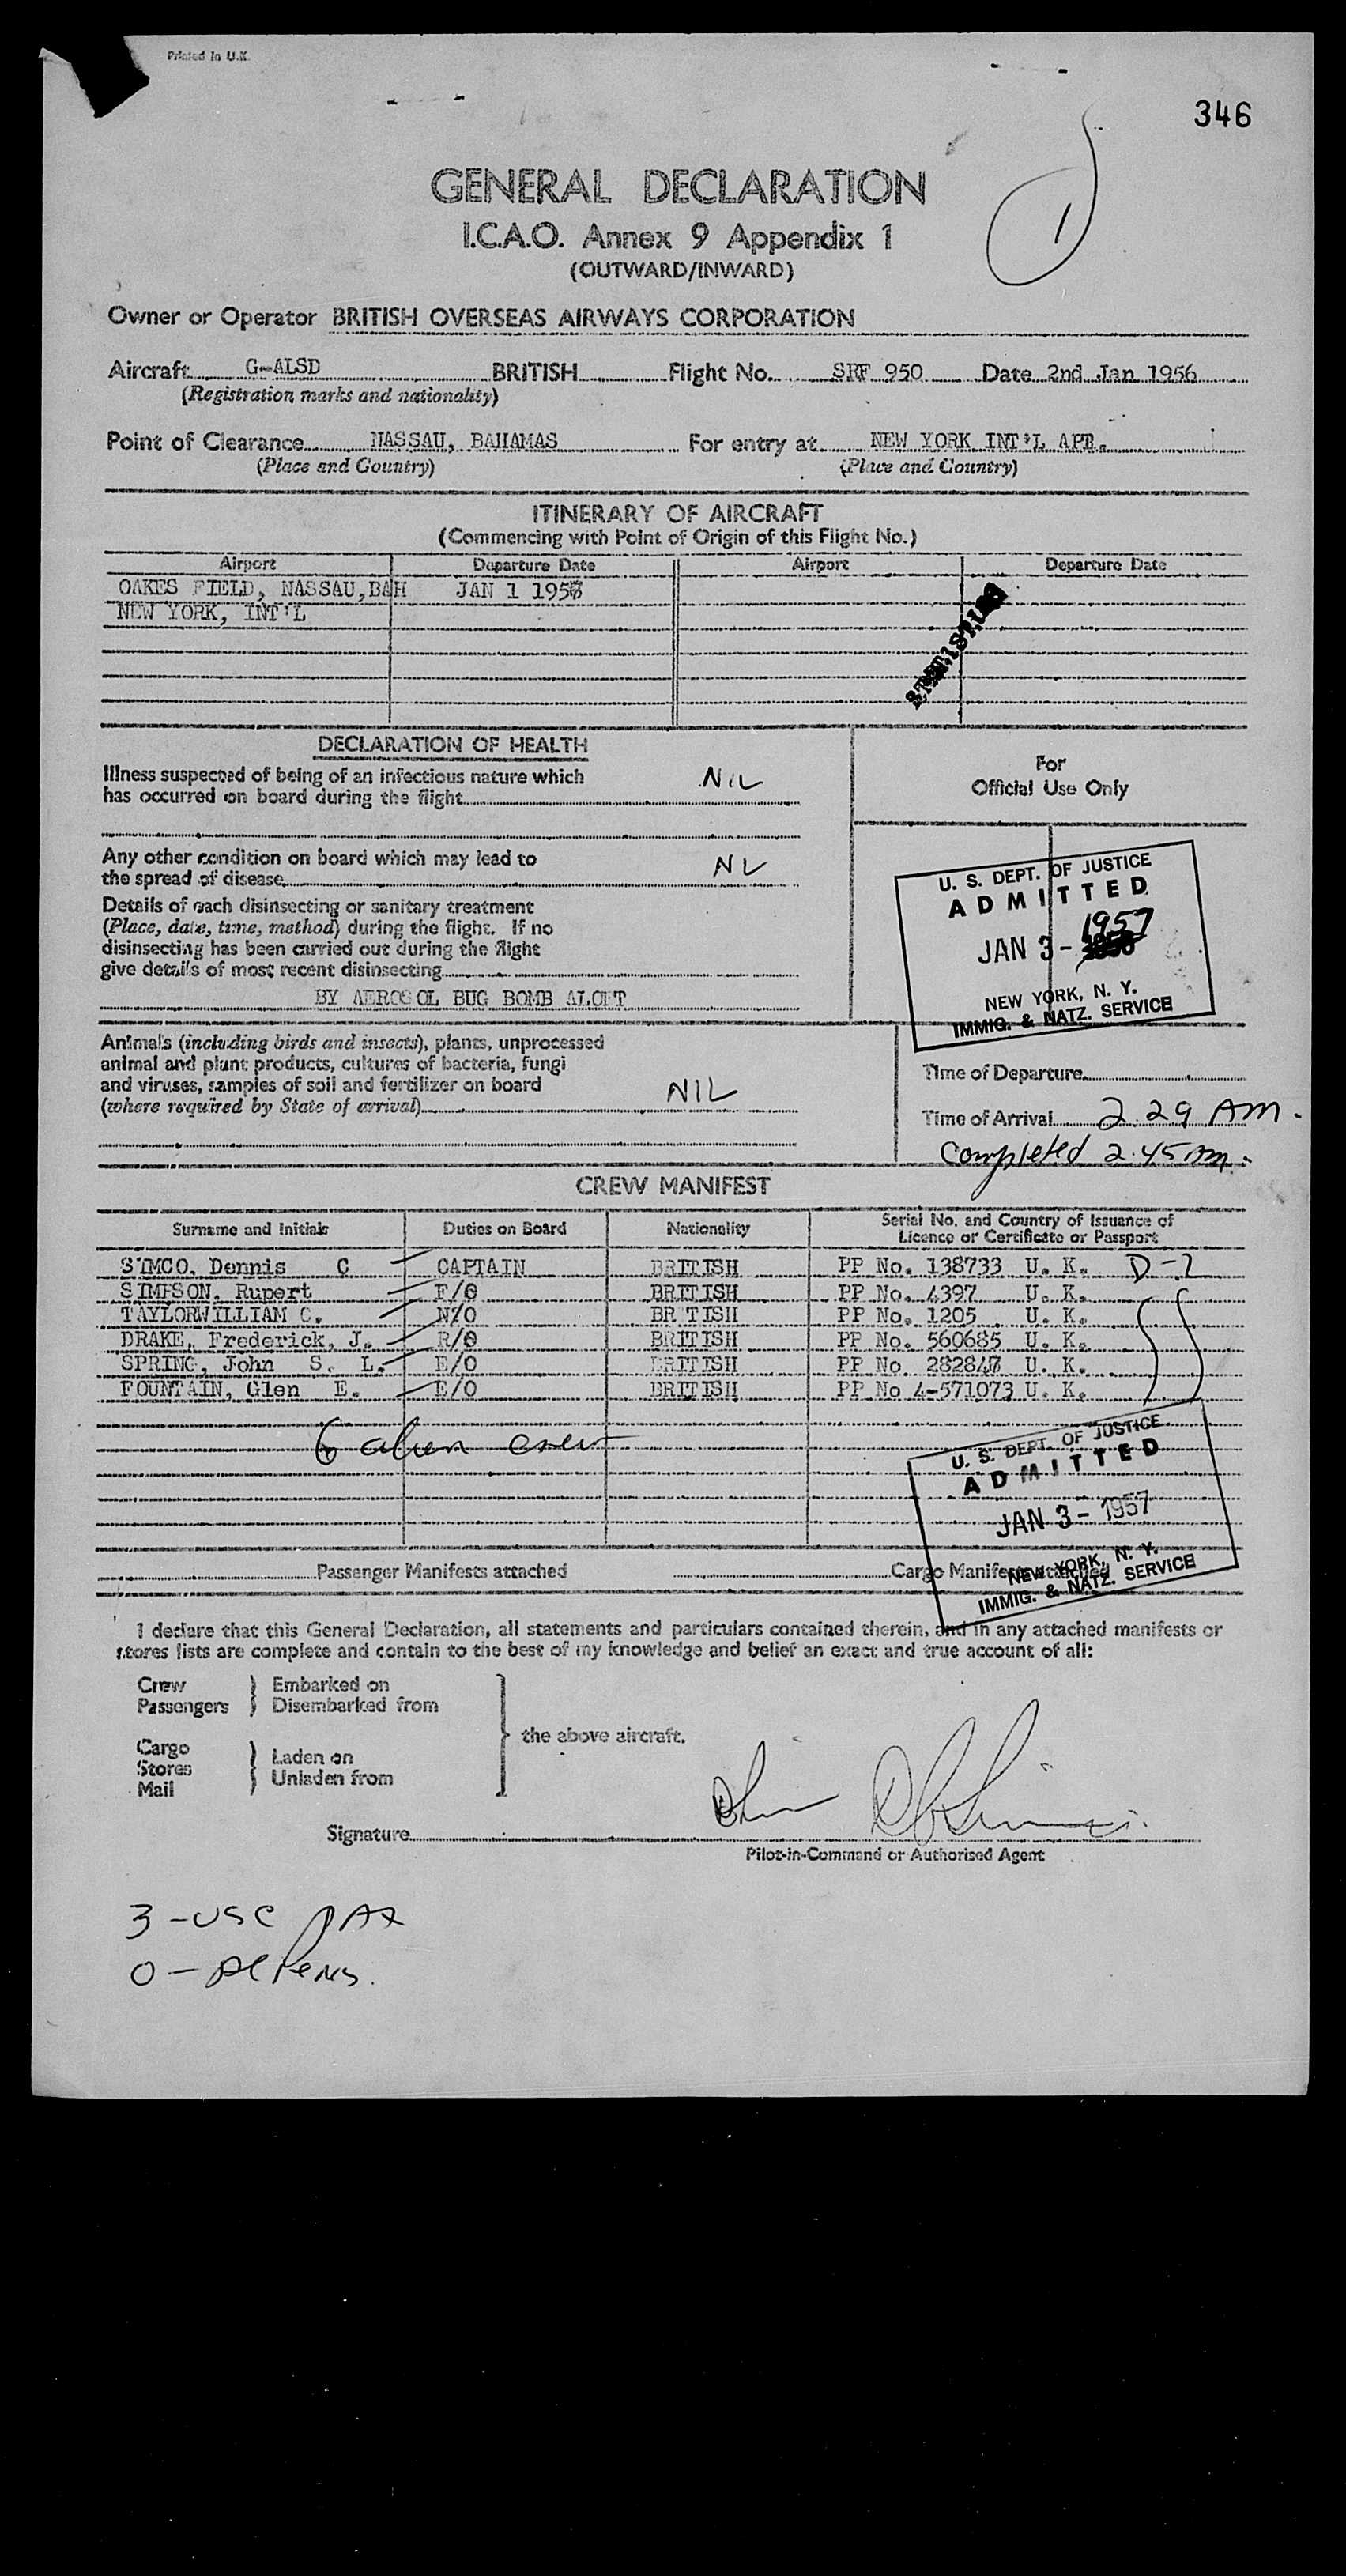 Printed in U.K.
346
1
GENERAL DECLARATION
I.C.A.O. Annex 9 Appendix 1
(OUTWARD/INWARD)
Owner or Operator BRITISH OVERSEAS AIRWAYS CORPORATION
Aircraft G-ALSD BRITISH Flight No. SRF 950 Date 2nd Jan 1956
(Registration marks and nationality)
Point of Clearance NASSAU, BAHAMAS For entry at NEW YORK INT'L APR.
(Place and Country) (Place and Country)
ITINERARY OF AIRCRAFT
(Commencing with Point of Origin of this Flight No.)
Airport Departure Date Airport Departure Date
OAKES FIELD, NASSAU, BAH JAN 1 1957
NEW YORK, INT'L
DECLARATION OF HEALTH
For
Official Use Only
Illness suspected of being of an infectious nature which
has occurred on board during the flight NIL
Any other condition on board which may lead to
the spread of disease NIL
Details of each disinsecting or sanitary treatment
(Place, date, time, method) during the flight. If no
disinsecting has been carried out during the flight
give details of most recent disinsecting
BY AEROSOL BUG BOMB ALOFT
U. S. DEPT. OF JUSTICE
ADMITTED
1957
JAN 3 -
NEW YORK, N. Y.
IMMIG. & NATZ. SERVICE
Animals (including birds and insects), plants, unprocessed
animal and plant products, cultures of bacteria, fungi
and viruses, samples of soil and fertilizer on board
(where required by State of arrival) NIL
Time of Departure
Time of Arrival 2.29 AM.
Completed 2.45 AM.
CREW MANIFEST
Surname and Initials Duties on Board Nationality Serial No. and Country of Issuance of
Licence or Certificate or Passport
SIMCO, Dennis C CAPTAIN BRITISH PP No. 138733 U. K. D-2
SIMPSON, Rupert F/O BRITISH PP No. 4397 U. K.
TAYLORWILLIAM C. N/O BR TISH PP No. 1205 U. K.
DRAKE, Frederick, J. R/O BRITISH PP No. 560685 U. K.
SPRING, John S. L. E/O BRITISH PP No. U. K.
FOUNTAIN, Glen E. E/O BRITISH PP No 4-571073 U. K.
6 alien crew
U. S. DEPT. OF JUSTICE
ADMITTED
JAN 3 - 1957
NEW YORK, N. Y.
IMMIG. & NATZ. SERVICE
Passenger Manifests attached Cargo Manifests attached
I declare that this General Declaration, all statements and particulars contained therein, and in any attached manifests or
stores lists are complete and contain to the best of my knowledge and belief an exact and true account of all:
Crew Embarked on
Passengers Disembarked from
the above aircraft.
Cargo
Stores Laden on
Mail Unladen from
Signature
Pilot-in-Command or Authorised Agent
3 - USC PAX
0 - Aliens.